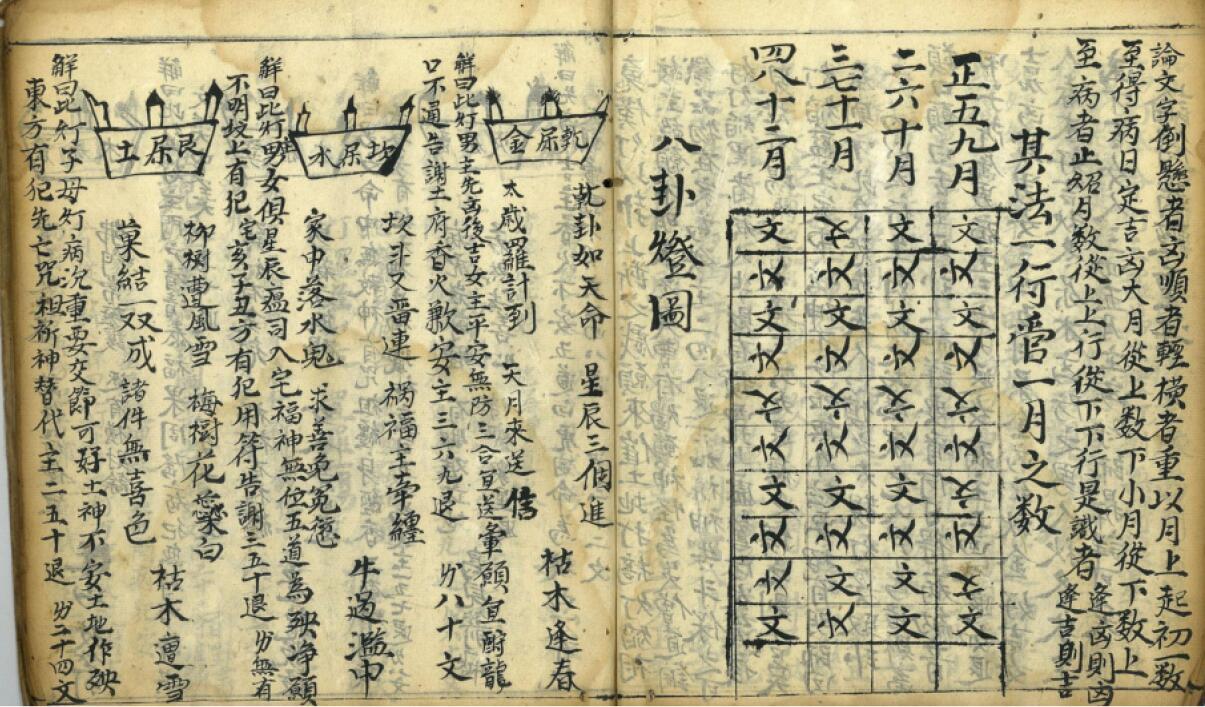 論文字倒懸者凶順者輕橫者重以月上起初一數
至得病日定吉凶大月從上數下小月從下數上
至病者止紹月数從上上行從下下行是識者 逢凶則凶 逢吉則吉
其法一行管一月之数
正五九月
二六十月
三七十一月
四八十二月
文文文文
文文文文
文文文文
文文文文
文文文文
文文文文
文文文文
文文文文
文文文文
文文文文
八卦燈圖
乾屎金
乾卦如天命 星辰三個進 枯木逢春
太歲羅計到 天月來送信
解曰此灯男主先凶後吉女主平安無防三合宜送暈願宜酧龍
口不通告謝土府香火歉安主三六九退 八十文
坎屎水
坎斗又晉連 禍福主牽纏 牛過濫中
家中落水鬼 求善免冤愆
解曰此灯男女俱星辰瘟司入宅福神無位五道為殃净願
不明坟上有犯宅亥子丑方有犯用符告謝三五十退 無有
艮屎土
柳樹遭風雪 梅樹花蕊白 枯木遭雪
菓結一双成 諸件無喜色
解曰此灯子母灯病沉重要交節可好土神不安土地作殃
東方有犯先亡咒祖祈神替代主二五十退 二十四文